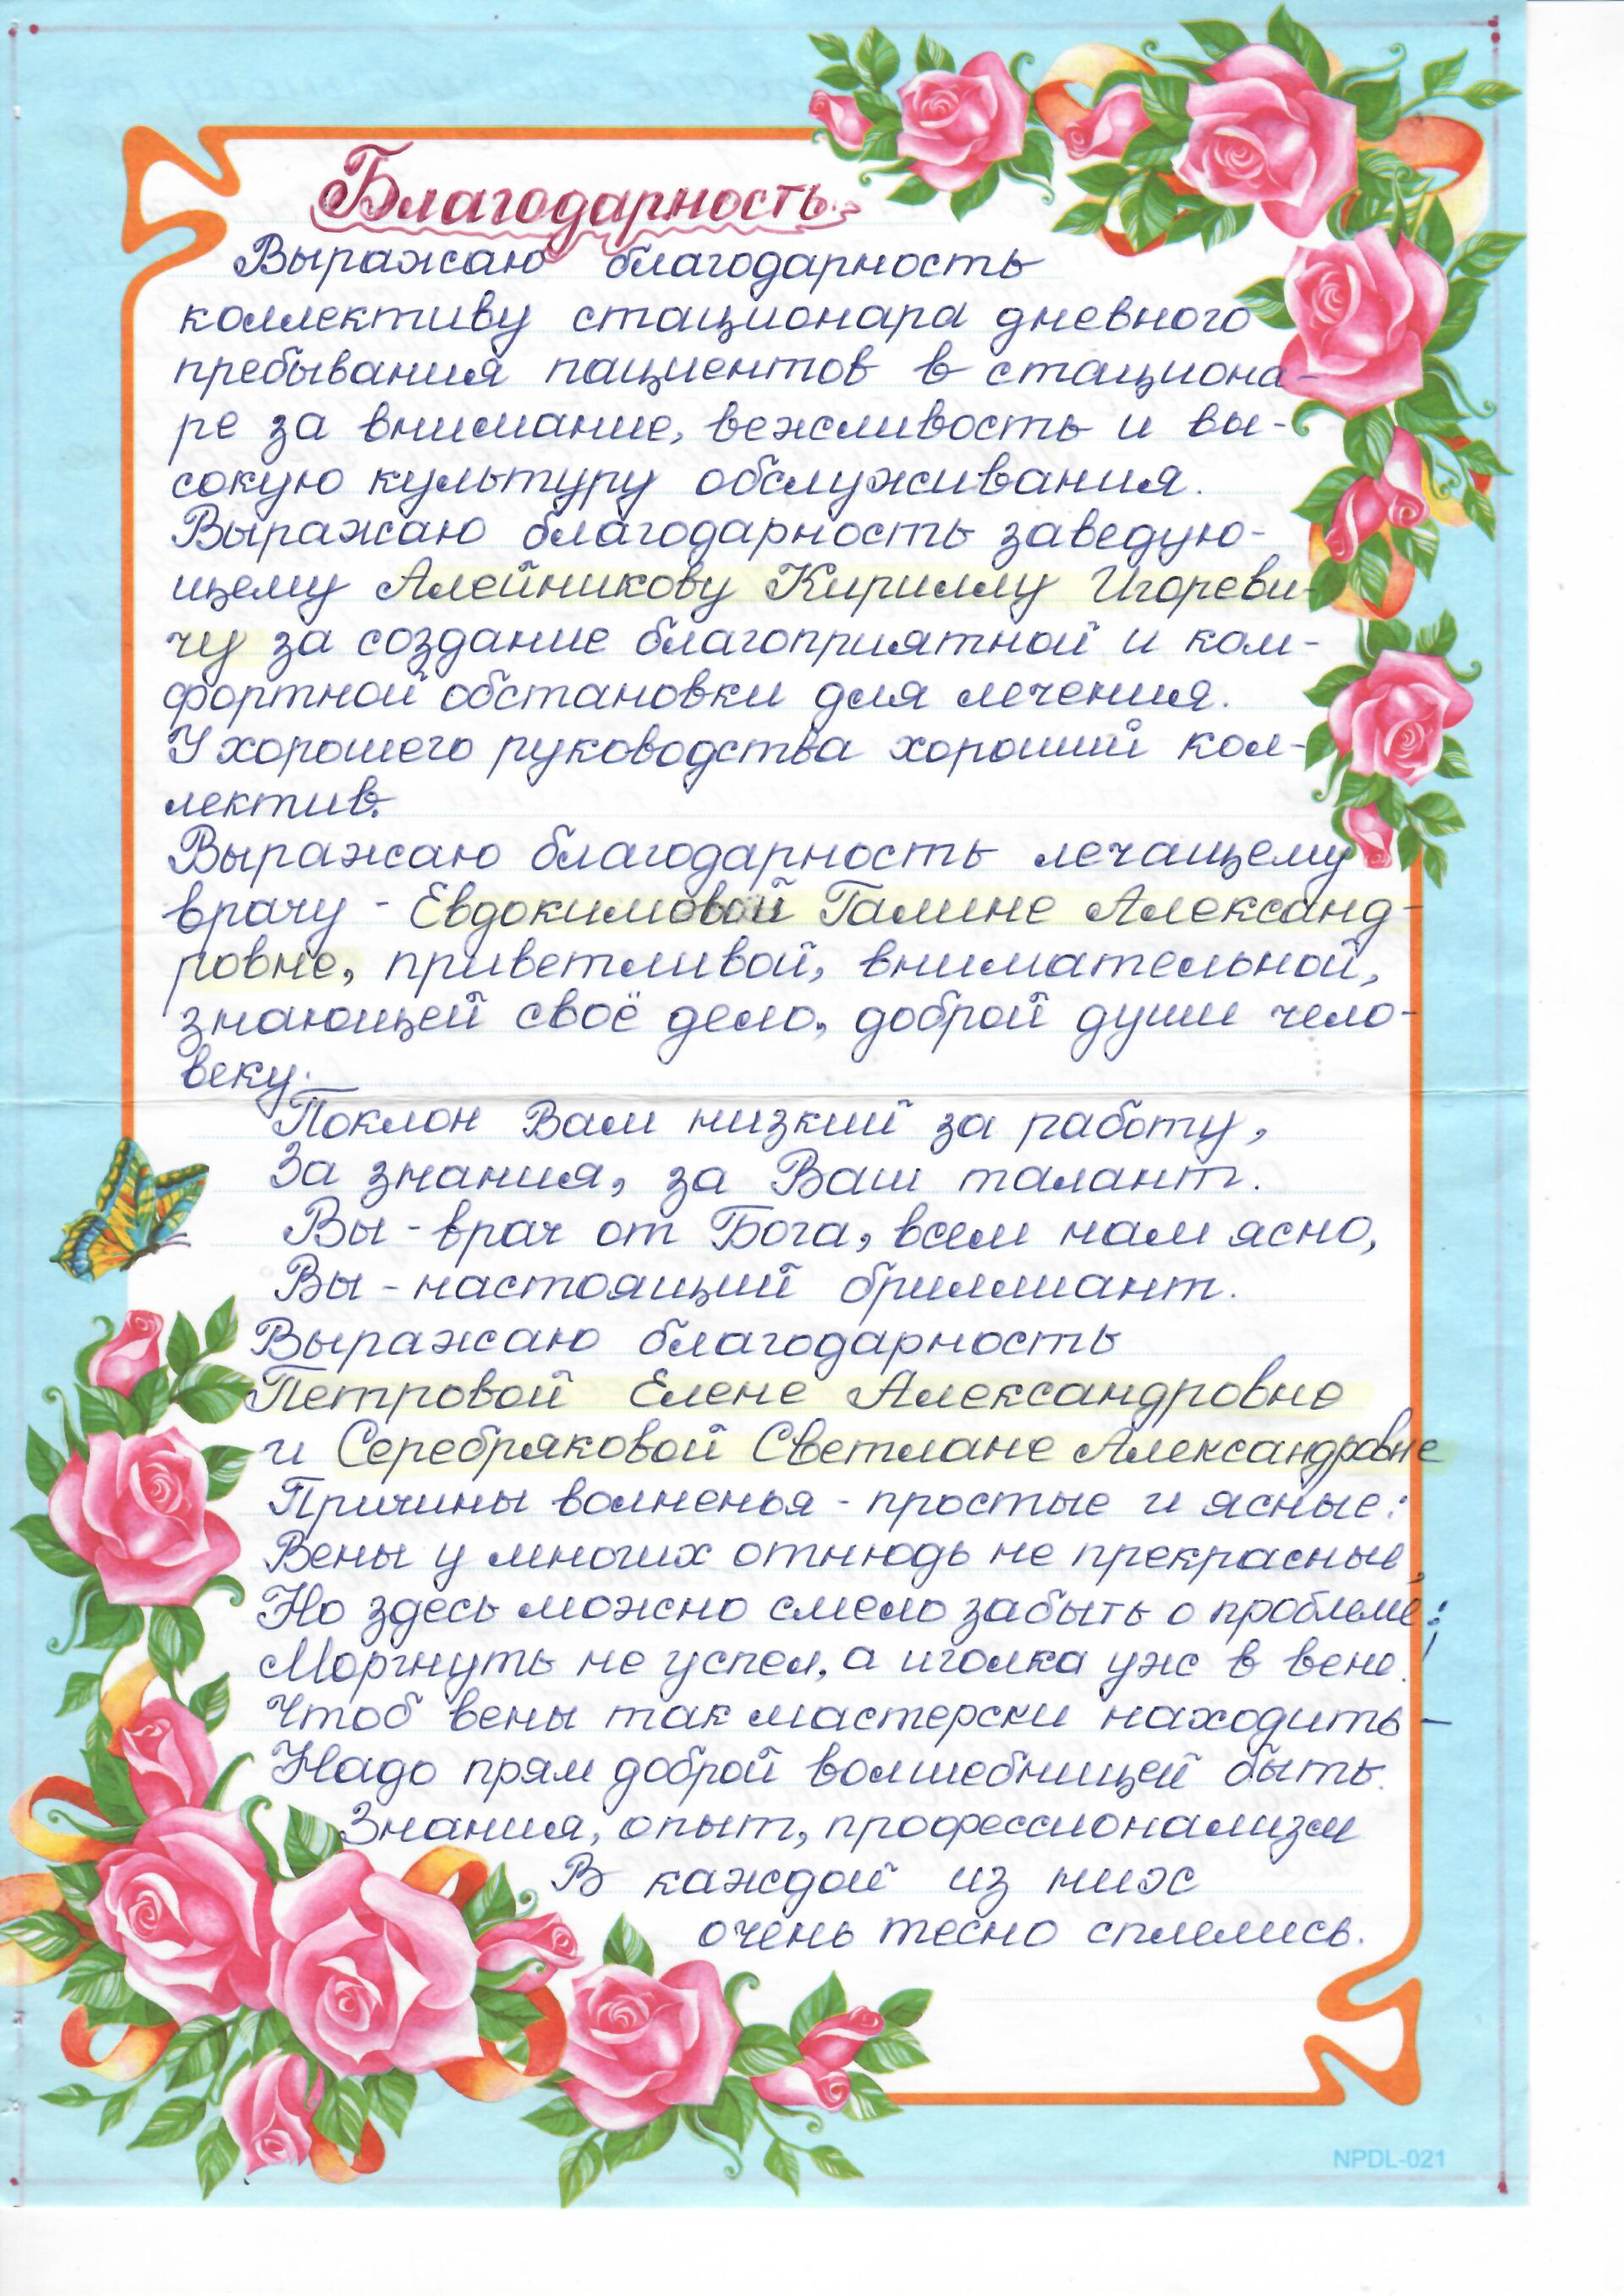 Благодарность.
Выражаю благодарность
коллективу стационара дневного
пребывания пациентов в стациона-
ре за внимание, вежливость и вы-
сокую культуру обслуживания.
Выражаю благодарность заведую-
щему Алейникову Кириллу Игореви-
чу за создание благоприятной и ком-
фортной обстановки для лечения.
У хорошего руководства хороший кол-
лектив.
Выражаю благодарность лечащему
врачу - Евдокимовой Галине Александ-
ровне, приветливой, внимательной,
знающей своё дело, доброй души чело-
веку.
Поклон Вам низкий за работу,
За знания, за Ваш талант.
Вы - врач от Бога, всем нам ясно,
Вы - настоящий бриллиант.
Выражаю благодарность
Петровой Елене Александровне
и Серебряковой Светлане Александровне
Причины волненья - простые и ясные:
Вены у многих отнюдь не прекрасные,
Но здесь можно смело забыть о проблеме:
Моргнуть не успел, а иголка уж в вене!
Чтоб вены так мастерски находить —
Надо прям доброй волшебницей быть.
Знания, опыт, профессионализм
В каждой из них
очень тесно сплелись.
NPDL-021